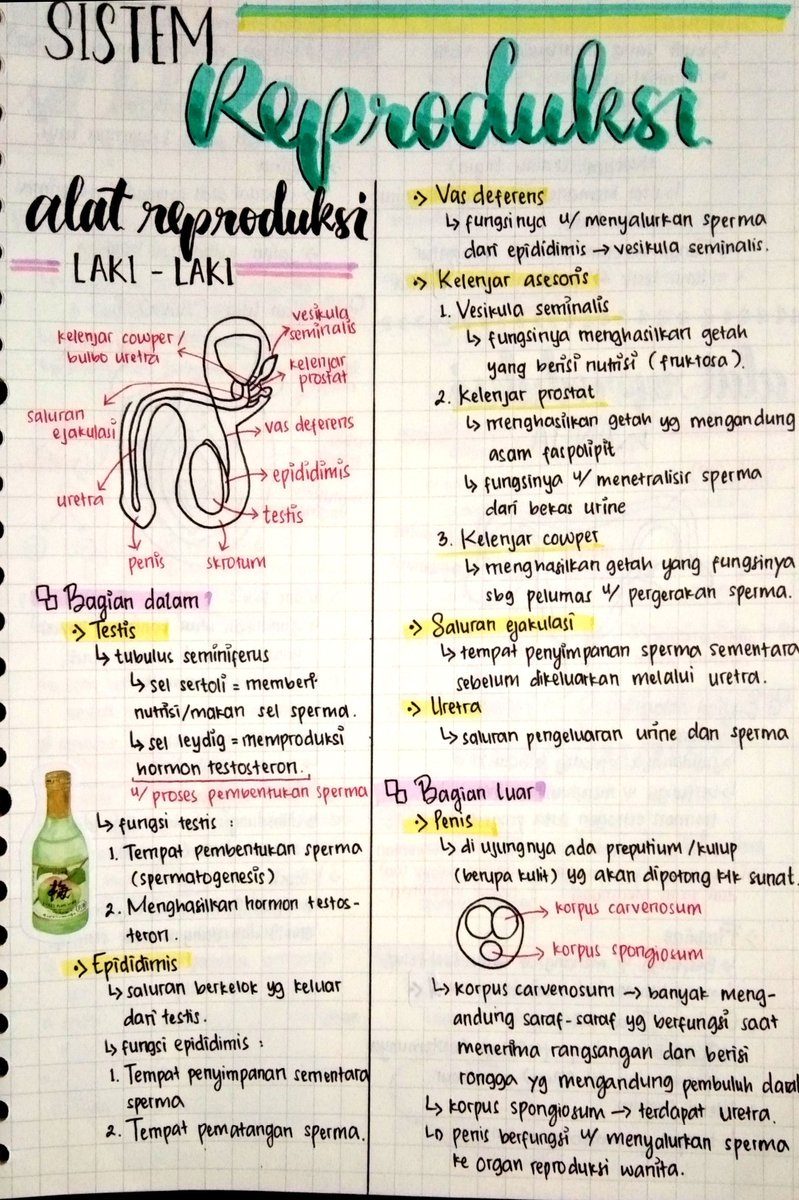 SISTEM
Reproduksi
alat reproduksi
LAKI - LAKI
kelenjar cowper/
bulbo uretra
vesikula
seminalis
kelenjar
prostat
saluran
ejakulasi
vas deferens
epididimis
uretra
testis
penis
skrotum
Bagian dalam
Testis
↳ tubulus seminiferus
↳ sel sertoli = memberi
nutrisi/makan sel sperma.
↳ sel leydig = memproduksi
hormon testosteron.
u/ proses pembentukan sperma
↳ fungsi testis :
1. Tempat pembentukan sperma
(spermatogenesis)
2. Menghasilkan hormon testos-
teron.
梅
Epididimis
↳ saluran berkelok yg keluar
dari testis.
↳ fungsi epididimis :
1. Tempat penyimpanan sementara
sperma
2. Tempat pematangan sperma.
Vas deferens
↳ fungsinya u/ menyalurkan sperma
dari epididimis → vesikula seminalis.
Kelenjar asesoris
1. Vesikula seminalis
↳ fungsinya menghasilkan getah
yang berisi nutrisi (fruktosa).
2. Kelenjar prostat
↳ menghasilkan getah yg mengandung
asam faspolipit
↳ fungsinya u/ menetralisir sperma
dari bekas urine
3. Kelenjar cowper
↳ menghasilkan getah yang fungsinya
sbg pelumas u/ pergerakan sperma.
Saluran ejakulasi
↳ tempat penyimpanan sperma sementara
sebelum dikeluarkan melalui uretra.
Uretra
↳ saluran pengeluaran urine dan sperma
Bagian luar
Penis
↳ di ujungnya ada preputium/kulup
(berupa kulit) yg akan dipotong klk sunat.
korpus carvenosum
korpus spongiosum
↳ korpus carvenosum → banyak meng-
andung saraf-saraf yg berfungsi saat
menerima rangsangan dan berisi
rongga yg mengandung pembuluh darah
↳ korpus spongiosum → terdapat uretra.
↳ penis berfungsi u/ menyalurkan sperma
ke organ reproduksi wanita.